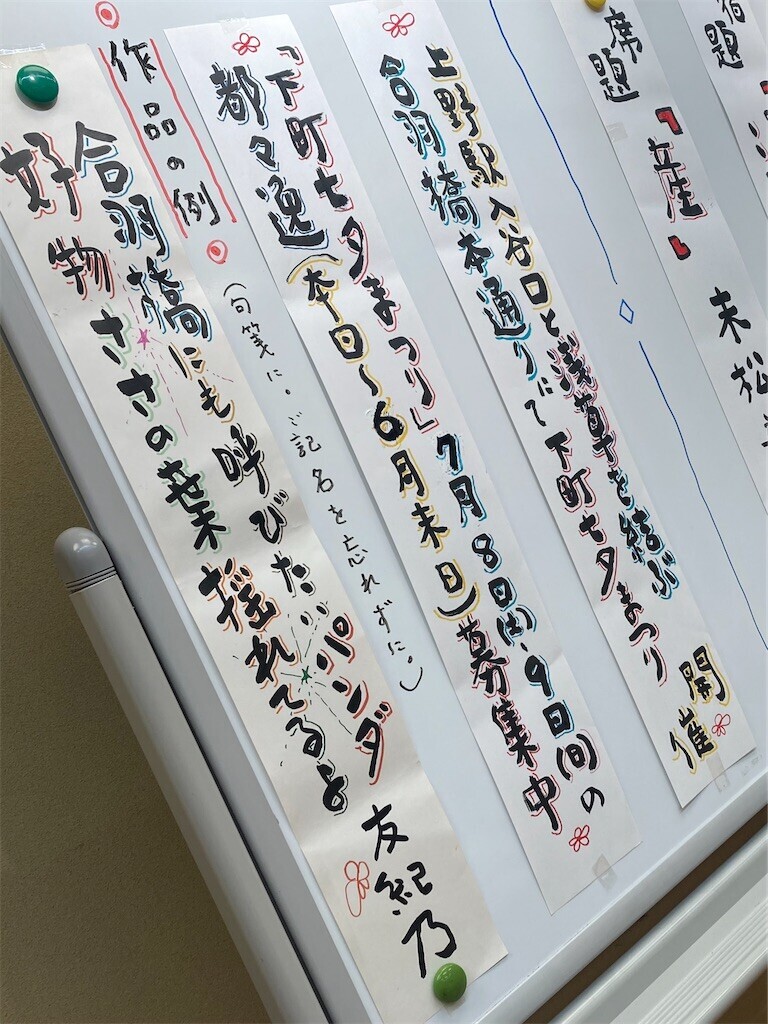 宿題
席題『産』 末松
上野駅入谷口と浅草を結ぶ
合羽橋本通りにて下町七夕まつり 開催
『下町七夕まつり』7月8日(土)、9日(日)の
都々逸(本日〜6月末日)募集中
作品の例
(句箋に・ご記名を忘れずに。)
合羽橋にも呼びたいパンダ
好物ささの葉揺れてるよ
友紀乃